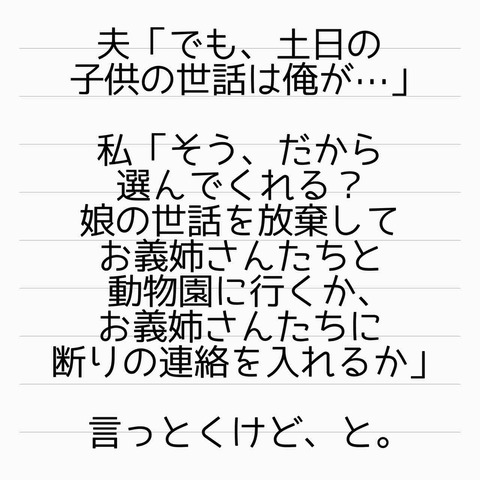 夫「でも、土日の
子供の世話は俺が…」
私「そう、だから
選んでくれる？
娘の世話を放棄して
お義姉さんたちと
動物園に行くか、
お義姉さんたちに
断りの連絡を入れるか」
言っとくけど、と。